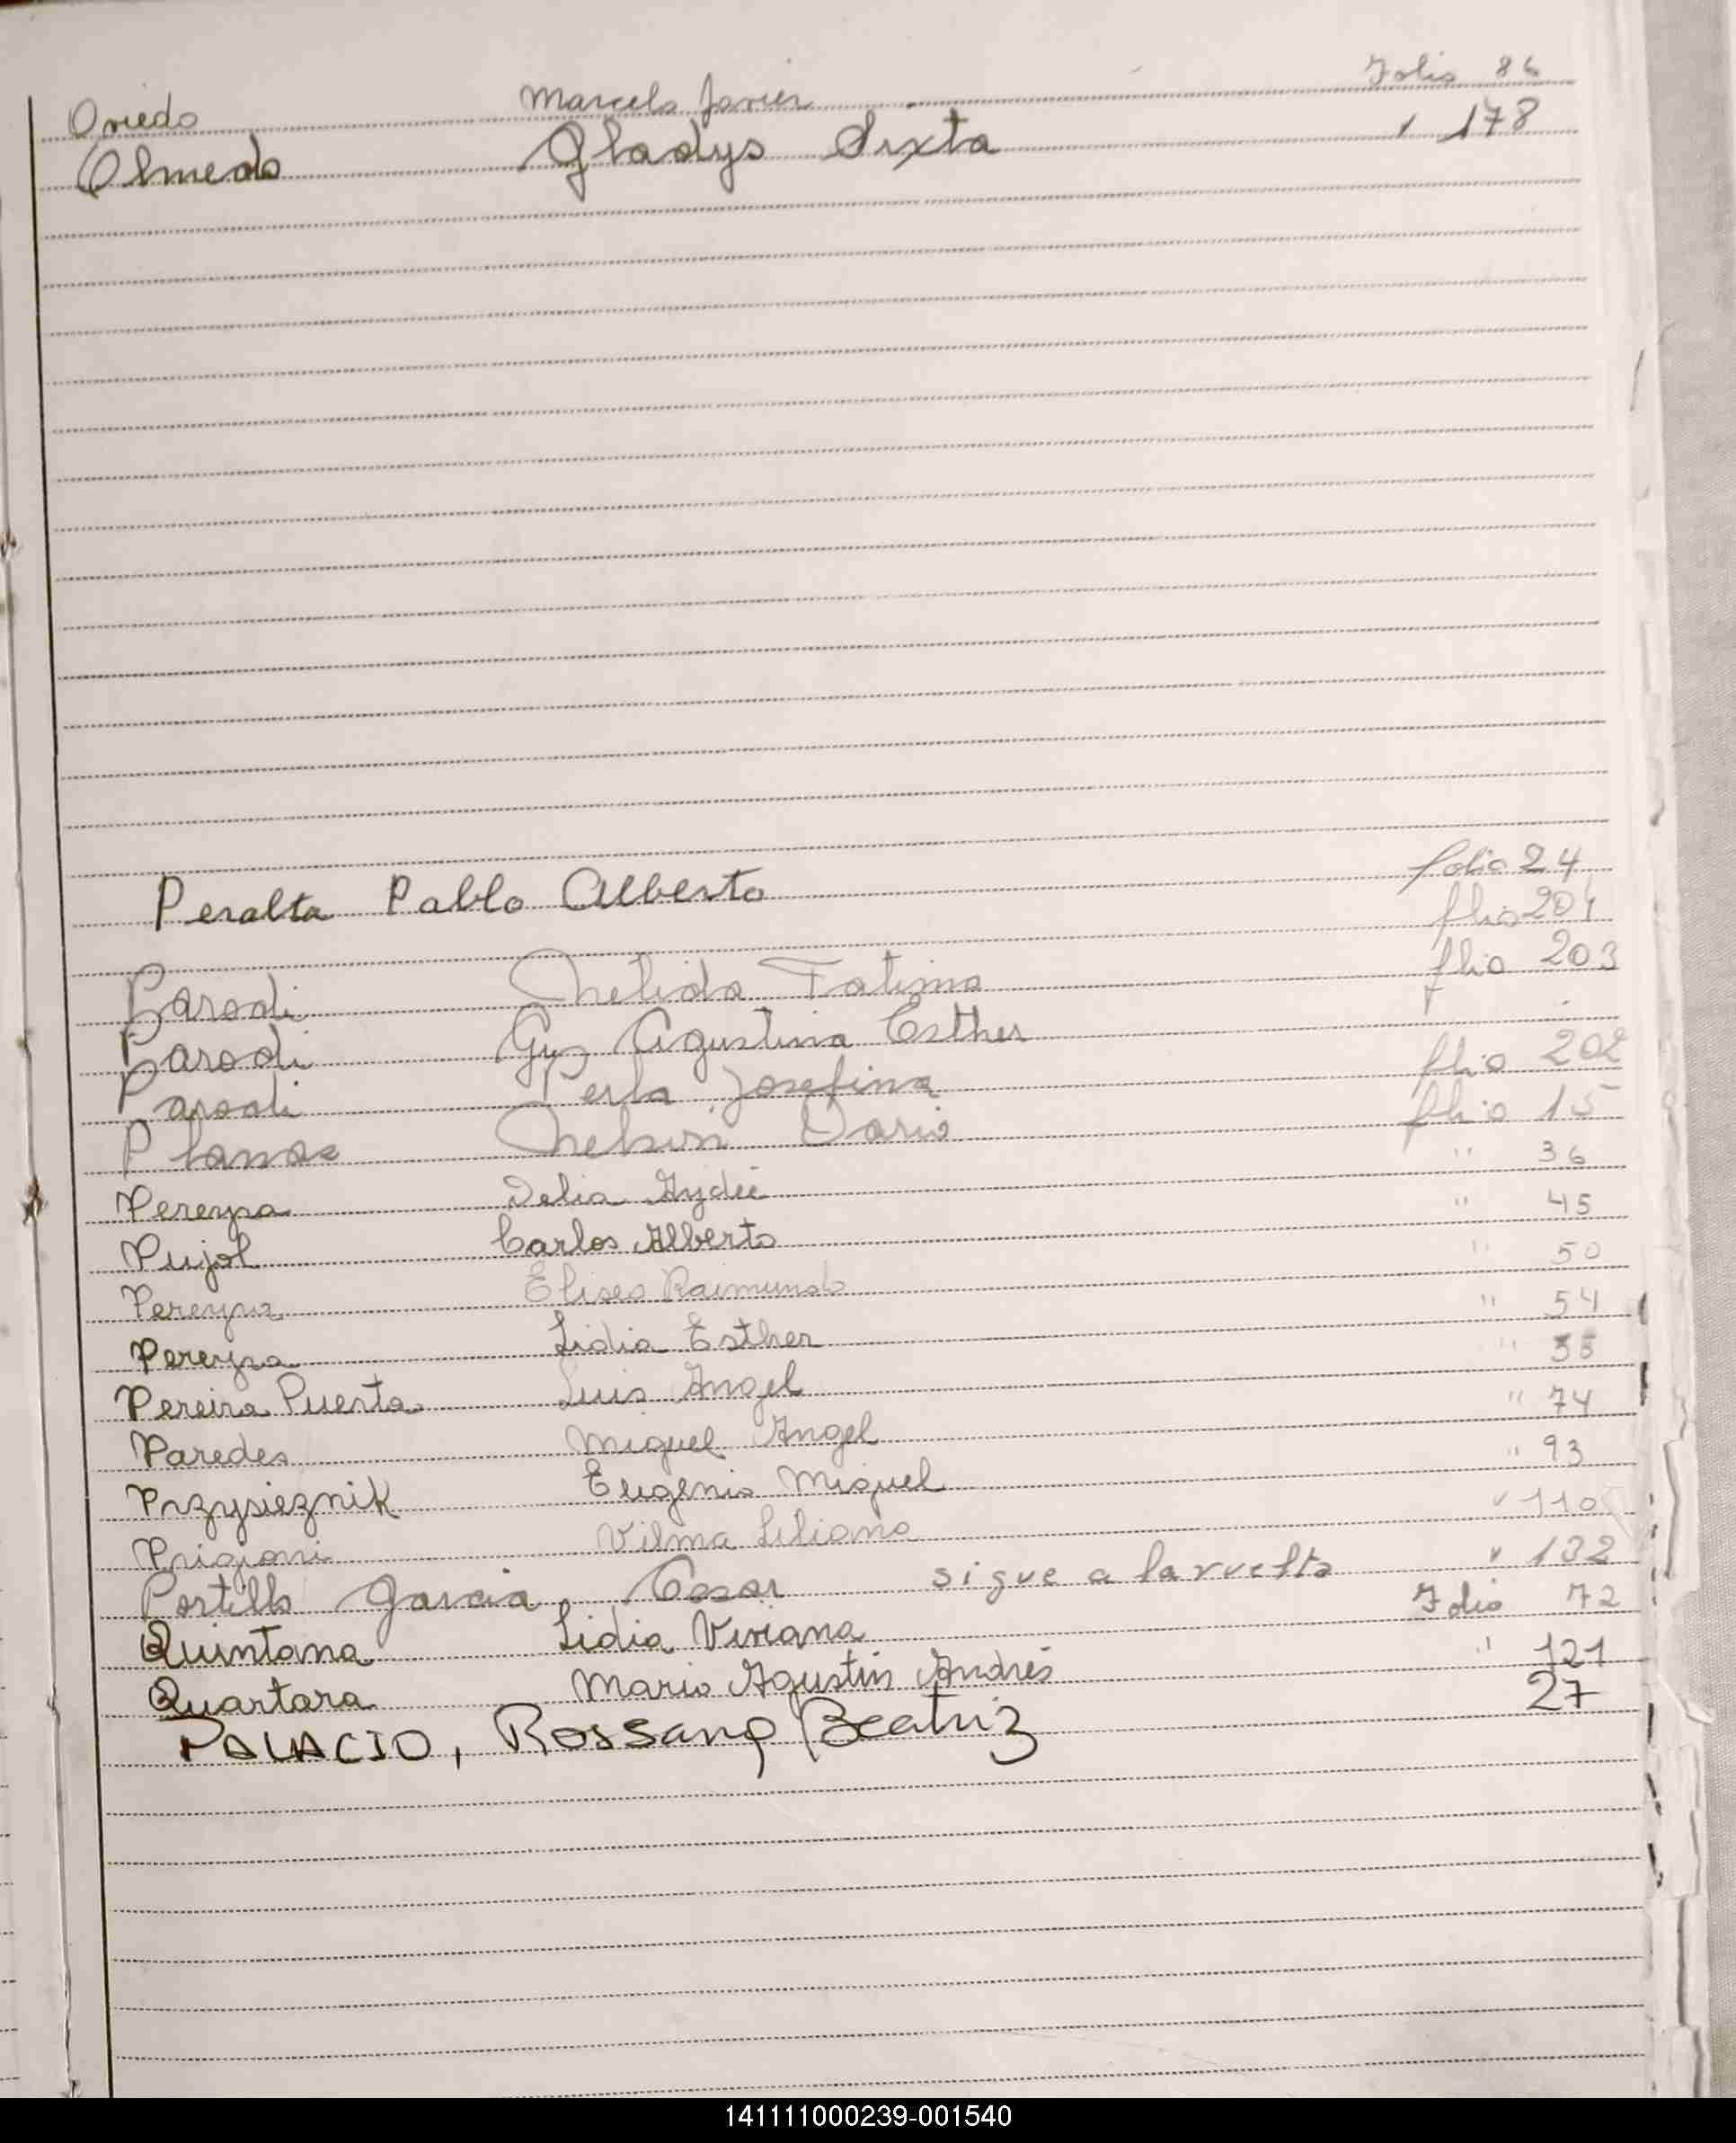 Oviedo Marcelo Javier Folio 86
Olmedo Gladys Sixta " 178
Peralta Pablo Alberto folio 24
Parodi Nelida Fatima folio 204
Parodi Agustina Esther folio 203
Parodi Perla Josefina folio 202
Planas Nelson Dario folio 15
Pereyra Delia Aydeé " 36
Pujol Carlos Alberto " 45
Pereyra Eliseo Raimundo " 50
Pereyra Lidia Esther " 54
Pereira Puerta Luis Angel "
Paredes Miguel Angel " 74
Przysieznik Eugenio Miguel " 93
Prigioni Vilma Liliana " 110
Portillo Garcia Cesar sigue a la vuelta " 132
Quintana Lidia Viviana Folio 72
Quartara Mario Agustin Andrés " 121
PALACIO, Rossana Beatriz 27
141111000239-001540